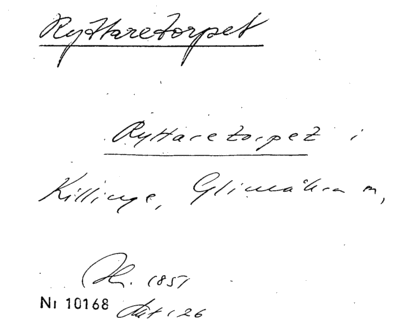 Ryttaretorpet
Ryttaretorpet i
Killinge, Glimåkra sn,
1851
Nr 10168 126